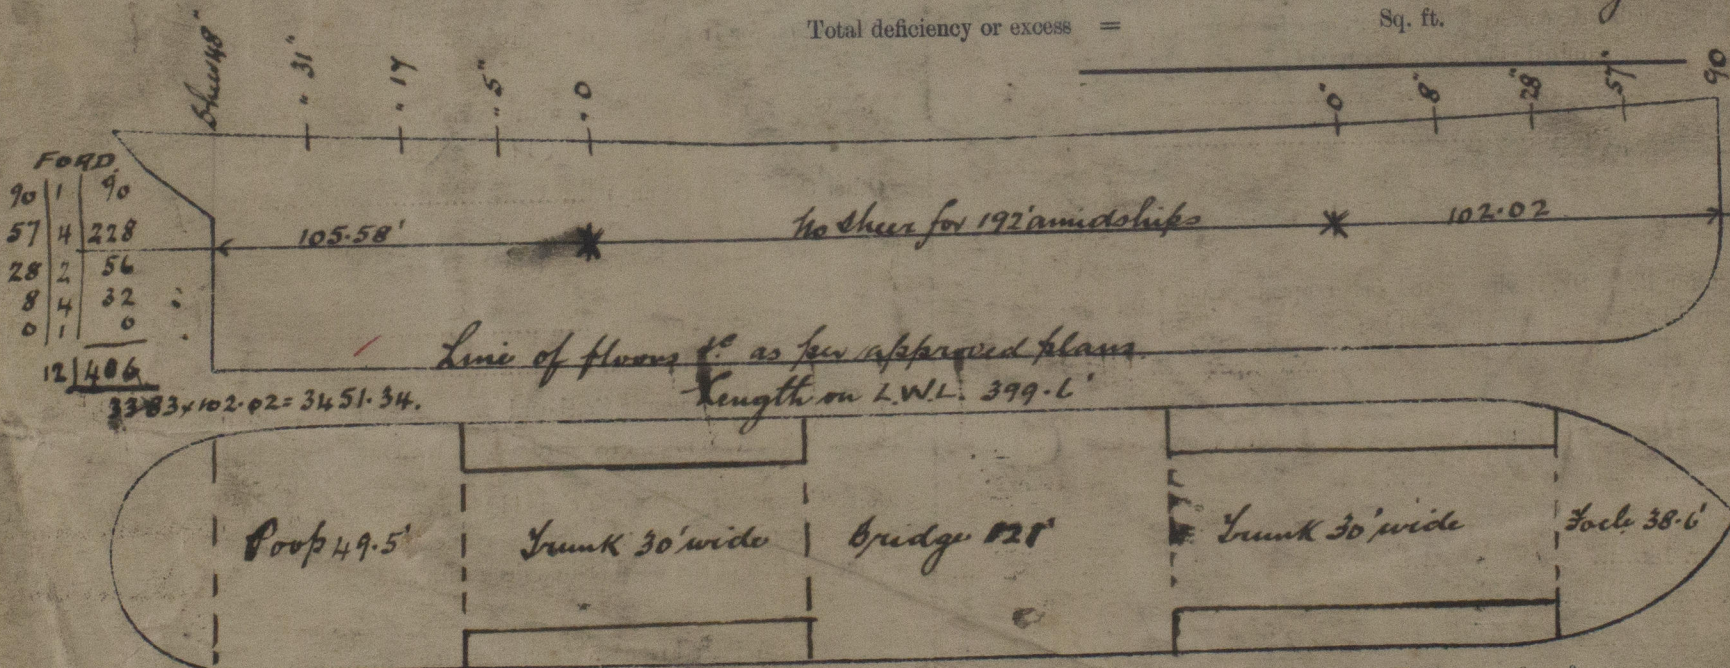 Total deficiency or excess = Sq. ft.
Sheer 48" " 31" " 17 " 5" " 0 0" 8" 28" 57" 90
FORD
90 1 90
57 4 228
28 2 56
8 4 32
0 1 0
12 406
105.58' No sheer for 192' amidships 102.02
33.83 x 102.02 = 3451.34.
Line of floors &c as per approved plans.
Length on L.W.L. 399.6'
Poop 49.5' Trunk 30' wide Bridge 121' Trunk 30' wide Focle 38.6'